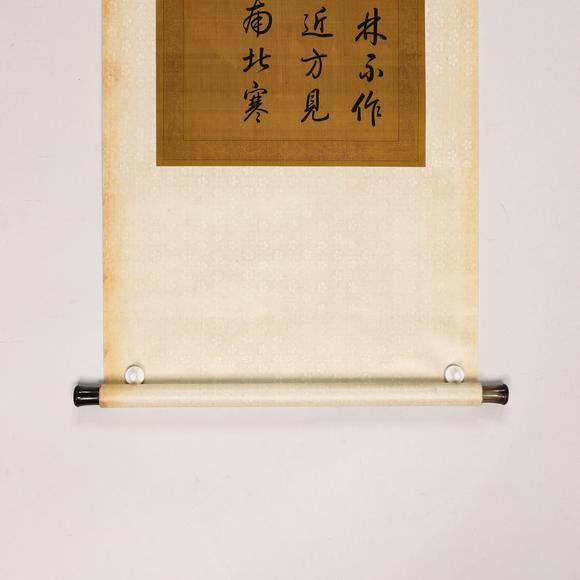 林不作
近方見
南北寒